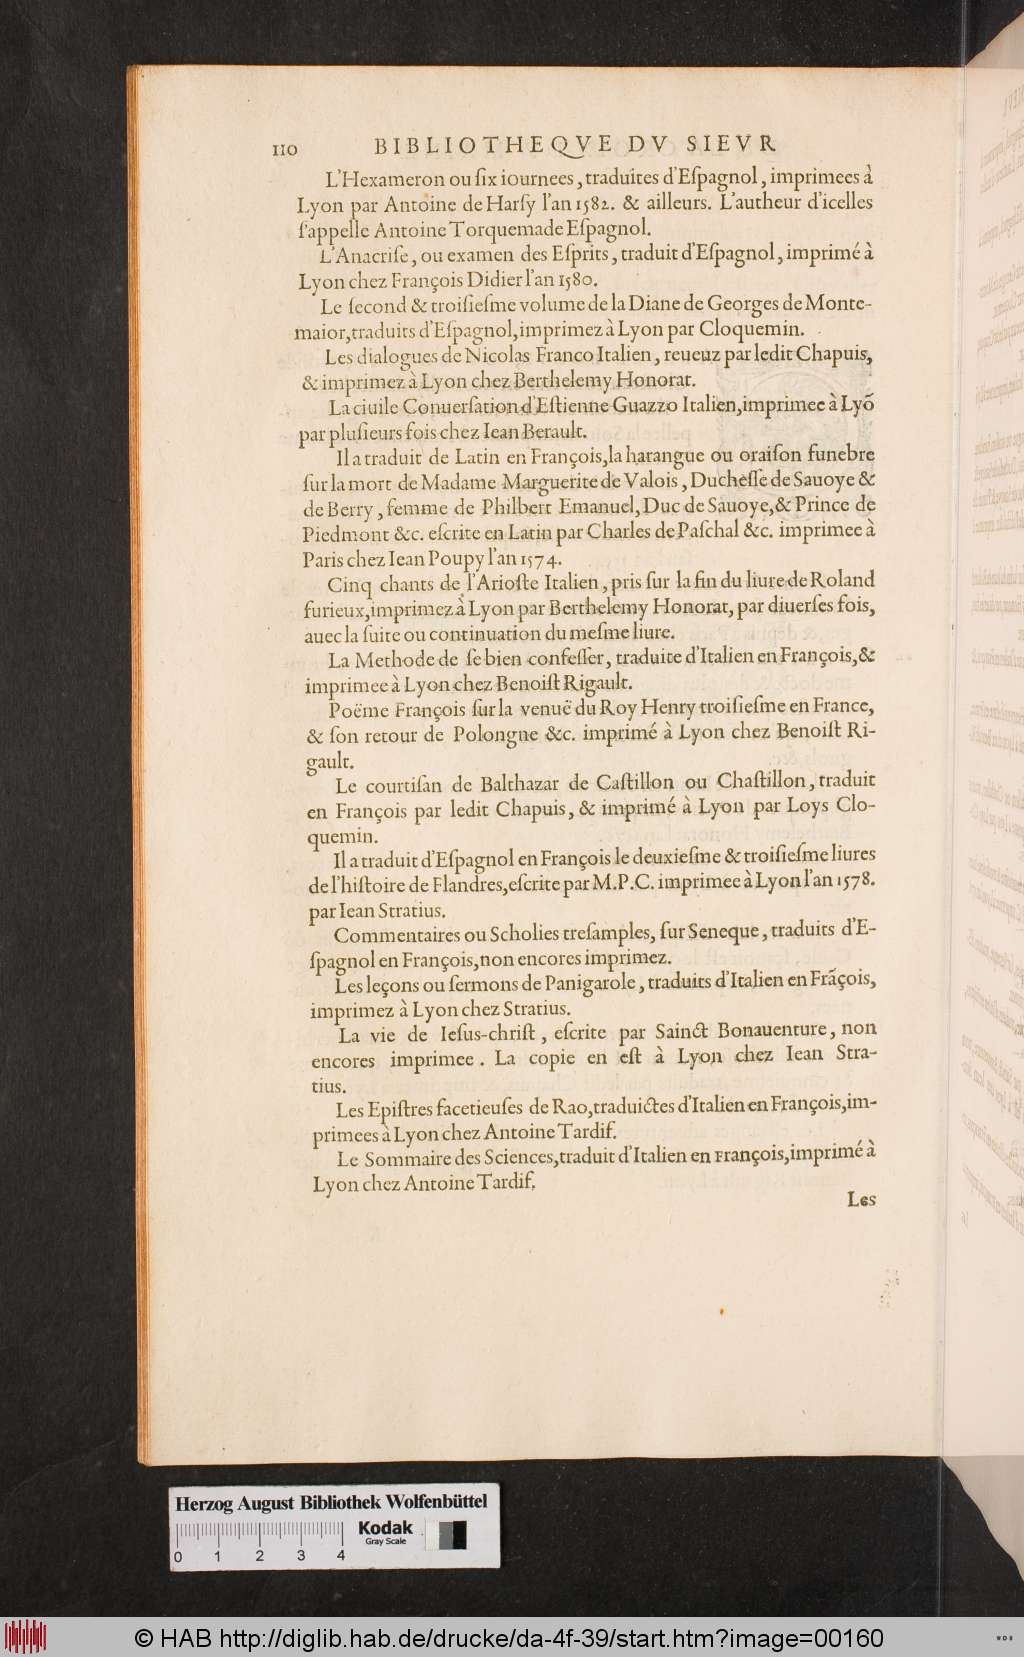 110 BIBLIOTHEQVE DV SIEVR
L'Hexameron ou ſix iournees, traduites d'Eſpagnol, imprimees à
Lyon par Antoine de Harſy l'an 1582. & ailleurs. L'autheur d'icelles
s'appelle Antoine Torquemade Eſpagnol.
L'Anacriſe, ou examen des Eſprits, traduit d'Eſpagnol, imprimé à
Lyon chez François Didier l'an 1580.
Le ſecond & troiſieſme volume de la Diane de Georges de Monte-
maior, traduits d'Eſpagnol, imprimez à Lyon par Cloquemin.
Les dialogues de Nicolas Franco Italien, reueuz par ledit Chapuis,
& imprimez à Lyon chez Berthelemy Honorat.
La ciuile Conuerſation d'Eſtienne Guazzo Italien, imprimee à Lyõ
par pluſieurs fois chez Iean Berault.
Il a traduit de Latin en François, la harangue ou oraiſon funebre
ſur la mort de Madame Marguerite de Valois, Ducheſſe de Sauoye &
de Berry, femme de Philbert Emanuel, Duc de Sauoye, & Prince de
Piedmont &c. eſcrite en Latin par Charles de Paſchal &c. imprimee à
Paris chez Iean Poupy l'an 1574.
Cinq chants de l'Arioſte Italien, pris ſur la fin du liure de Roland
furieux, imprimez à Lyon par Berthelemy Honorat, par diuerſes fois,
auec la ſuite ou continuation du meſme liure.
La Methode de ſe bien confeſſer, traduite d'Italien en François, &
imprimee à Lyon chez Benoiſt Rigault.
Poëme François ſur la venuë du Roy Henry troiſieſme en France,
& ſon retour de Polongne &c. imprimé à Lyon chez Benoiſt Ri-
gault.
Le courtiſan de Balthazar de Caſtillon ou Chaſtillon, traduit
en François par ledit Chapuis, & imprimé à Lyon par Loys Clo-
quemin.
Il a traduit d'Eſpagnol en François le deuxieſme & troiſieſme liures
de l'hiſtoire de Flandres, eſcrite par M.P.C. imprimee à Lyon l'an 1578.
par Iean Stratius.
Commentaires ou Scholies treſamples, ſur Seneque, traduits d'E-
ſpagnol en François, non encores imprimez.
Les leçons ou ſermons de Panigarole, traduits d'Italien en Frãçois,
imprimez à Lyon chez Stratius.
La vie de Ieſus-chriſt, eſcrite par Sainct Bonauenture, non
encores imprimee. La copie en eſt à Lyon chez Iean Stra-
tius.
Les Epiſtres facetieuſes de Rao, traduictes d'Italien en François, im-
primees à Lyon chez Antoine Tardif.
Le Sommaire des Sciences, traduit d'Italien en François, imprimé à
Lyon chez Antoine Tardif.
Les
Herzog August Bibliothek Wolfenbüttel
Kodak
Gray Scale
0 1 2 3 4
© HAB http://diglib.hab.de/drucke/da-4f-39/start.htm?image=00160